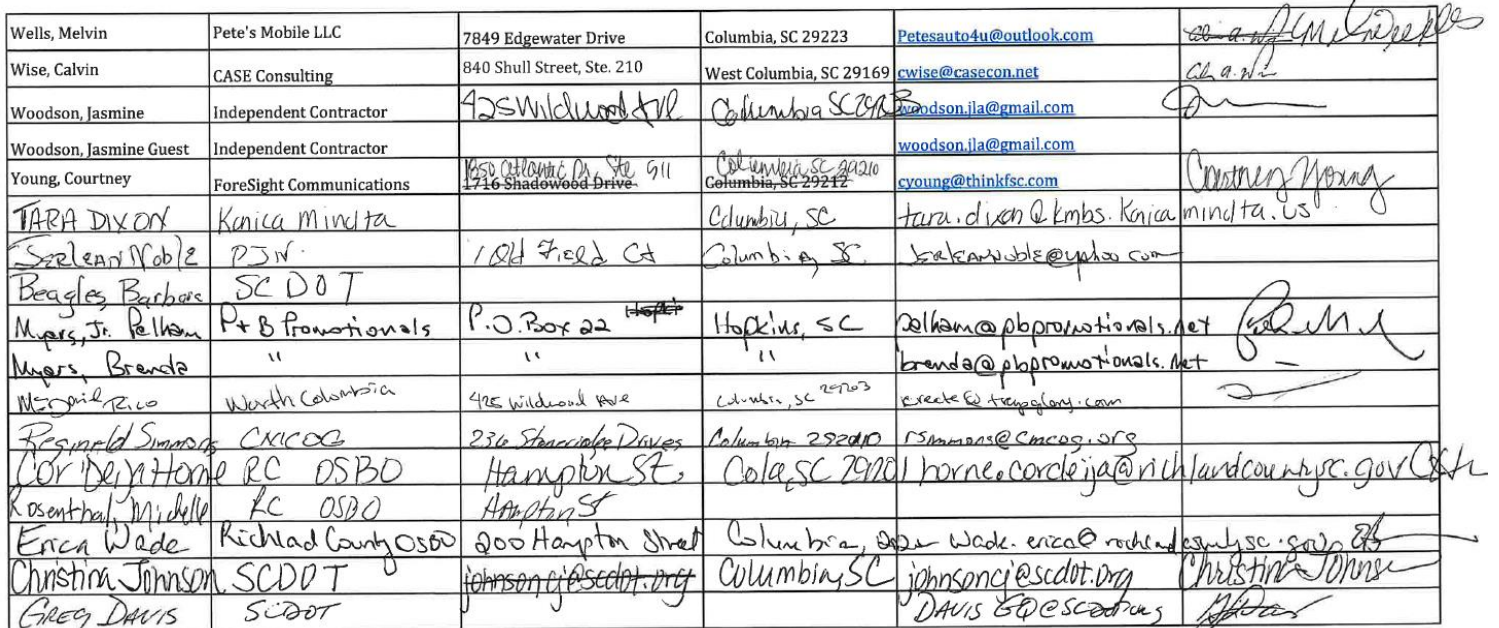 Wells, Melvin Pete's Mobile LLC 7849 Edgewater Drive Columbia, SC 29223 Petesauto4u@outlook.com
Wise, Calvin CASE Consulting 840 Shull Street, Ste. 210 West Columbia, SC 29169 cwise@casecon.net
Woodson, Jasmine Independent Contractor 425 Wildwood Ave Columbia SC woodson.jla@gmail.com
Woodson, Jasmine Guest Independent Contractor woodson.jla@gmail.com
Young, Courtney ForeSight Communications 1850 Atlantic Dr, Ste 911 Columbia, SC 29210 cyoung@thinkfsc.com Courtney Young
1716 Shadowood Drive Columbia, SC 29212
TARA DIXON Konica Minolta Columbia, SC tara.dixon@kmbs.konicaminolta.us
SERLEAN Noble PJN 1 Old Field Ct Columbia SC
Beagles, Barbara SCDOT
Myers, Jr. Pelham P+B Promotionals P.O. Box 22 Hopkins, SC pelham@pbpromotionals.net
Myers, Brenda " " " brenda@pbpromotionals.net
Rico Worth Columbia 425 Wildwood Ave Columbia, SC 29203
Reginald Simmons CMCOG 236 Columbia rsimmons@cmcog.org
Cor'Deija Horne RC OSBO Hampton St. Cola, SC 29201 horne.cordeija@richlandcountysc.gov
Rosenthal, Michelle RC OSBO Hampton St
Erica Wade Richlad County OSBO 200 Hampton Street Columbia, wade.erica@richlandcountysc.gov
Christina Johnson SCDOT johnsoncj@scdot.org Columbia, SC johnsoncj@scdot.org Christina Johnson
GREG DAVIS SCDOT